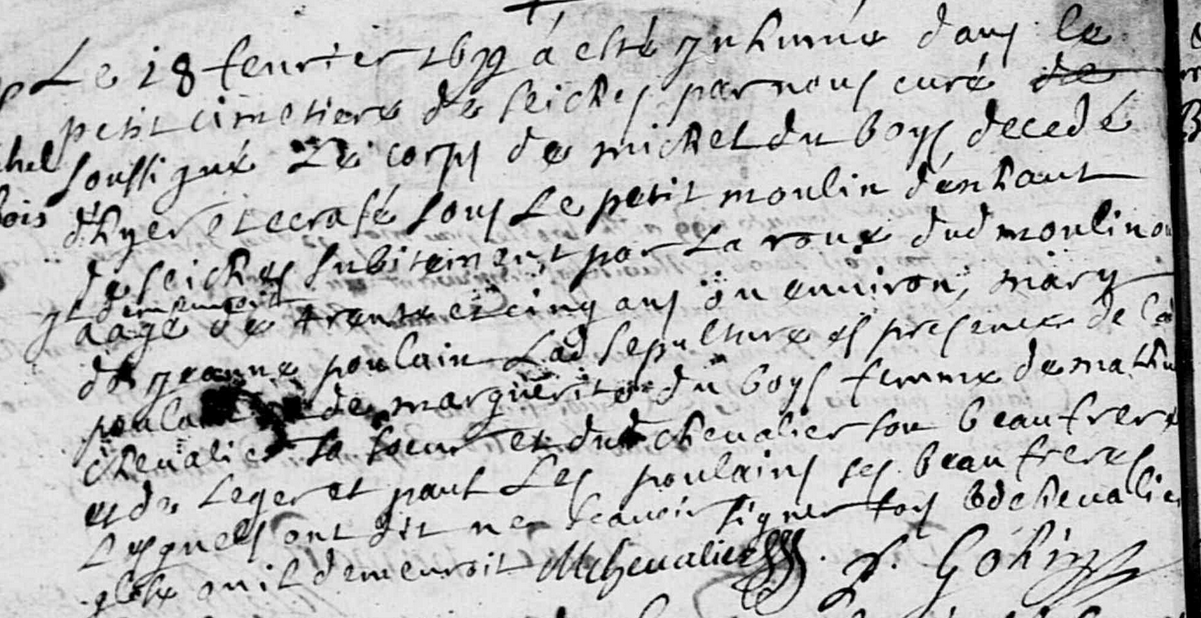 Le 18 fevrier 1699 a esté ynhumé dans le
petit cimetiere de seiches par nous curé de
soussigné Le corps de michel du boys decedé
d'hyer et ecrasé sous Le petit moulin d'enhaut
de seiches subitement par La roue dud moulin ou
yl demeuroit
aagé de trente et cinq ans ou environ, mary
de jeanne poulain Lad sepulture es presence de la
poulain de marguerite du boys femme de mathu
chevalier sa soeur et dud chevalier son beaufrere
et de Leger et paul Les poulains ses beaufreres
Lesquels ont dit ne scavoir signer fors led chevalier
ou il demeuroit MChevalier P. Gohin
chel
bois